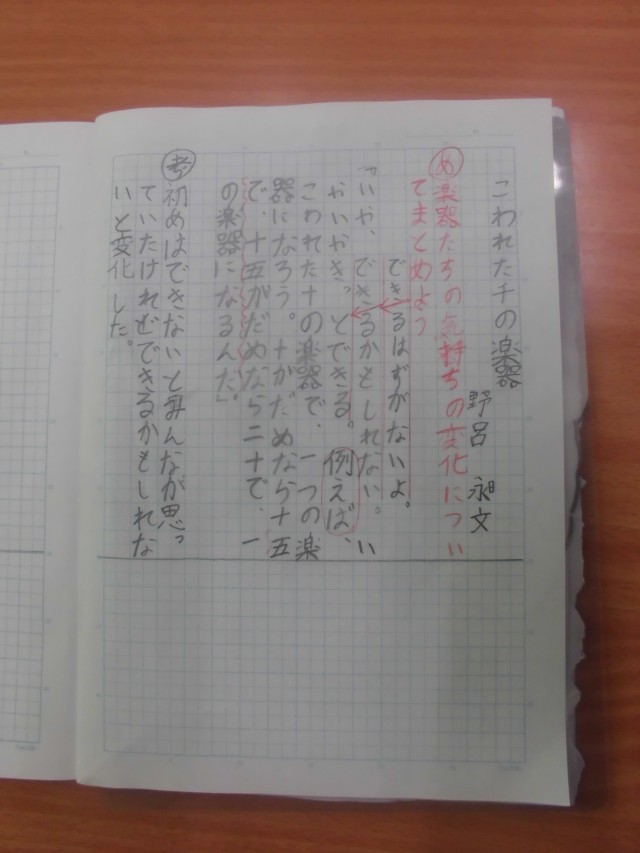 こわれた千の楽器
野呂 昶文
め 楽器たちの気持ちの変化につい
てまとめよう
できるはずがないよ。
「いや、できるかもしれない。い
やいやきっとできる。例えば、
こわれた十の楽器で、一つの楽
器になろう。十がだめなら十五
で、十五がだめなら二十で、一
の楽器になるんだ」。
考 初めはできないとみんなが思っ
ていたけれどできるかもしれな
いと変化した。